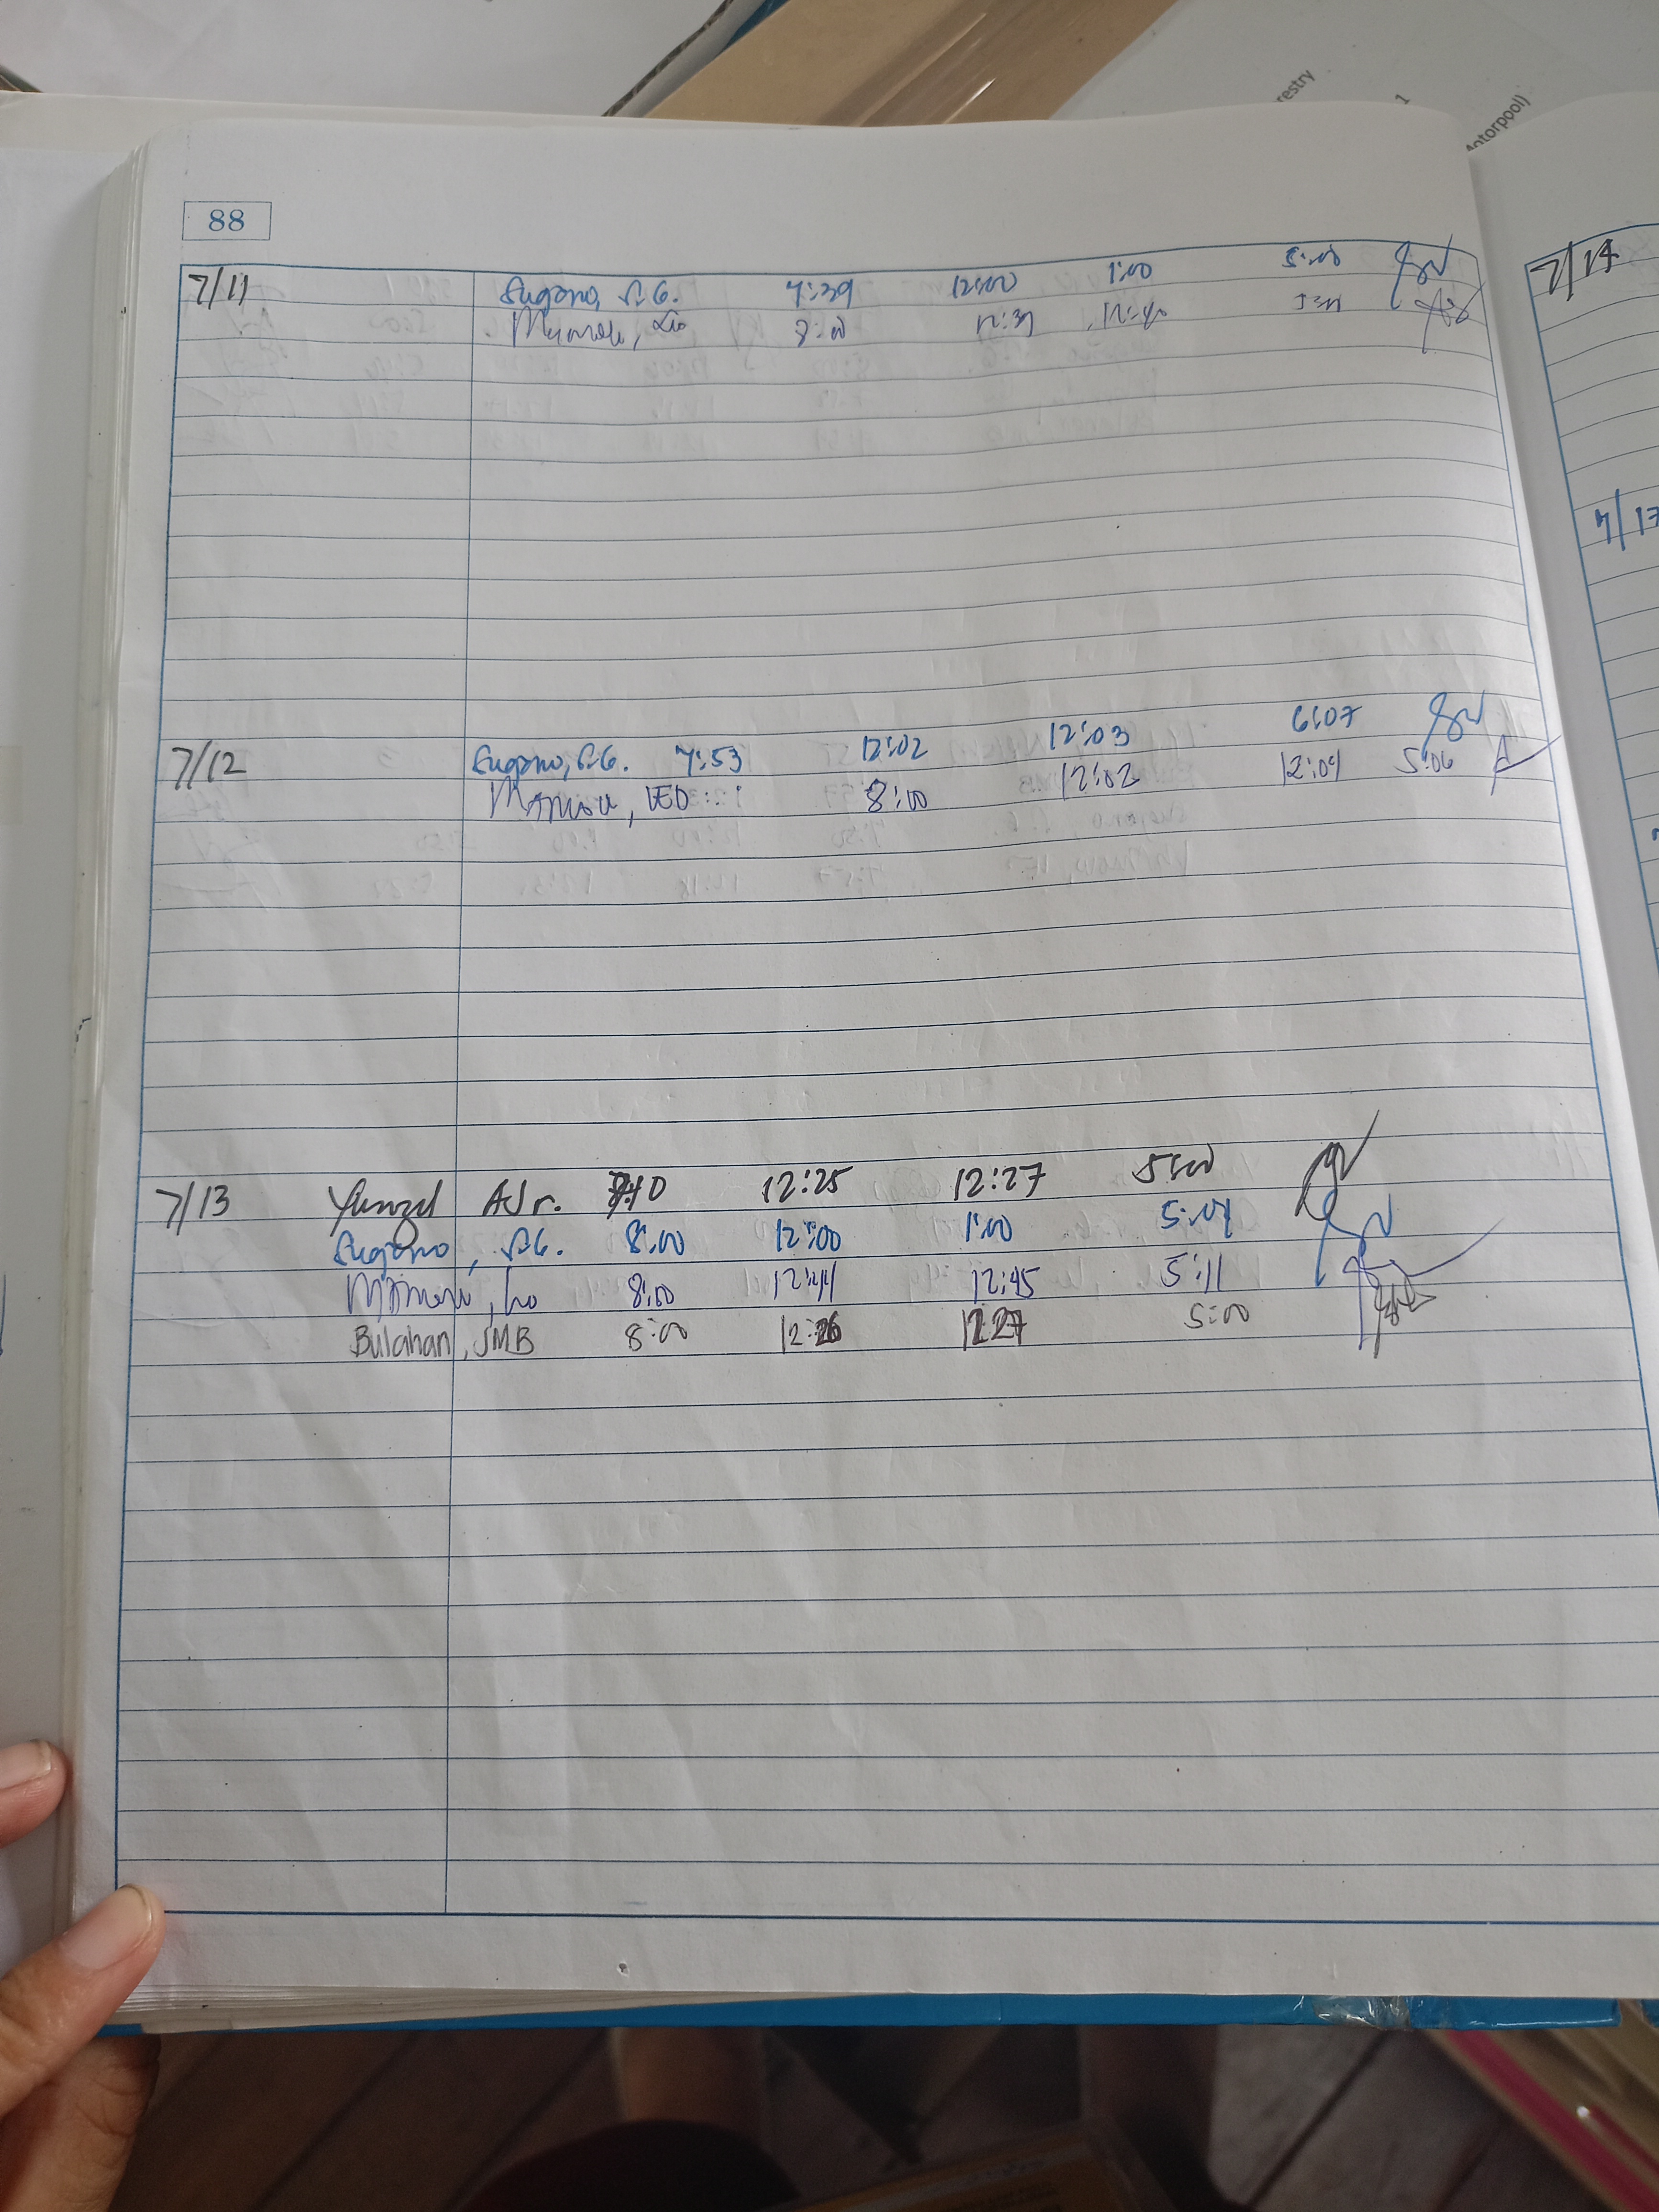 restry
1
Motorpool)
88
7/11 Sugano, S.G. 7:39 12:00 1:00 5:00
8:00 12:39 12:40
7/12 Sugano, S.G. 7:53 12:02 12:03 6:07
LEO 8:00 12:02 12:04 5:06
7/13 AJr. 12:25 12:27 5:00
Sugano, S.G. 8:00 12:00 1:00 5:04
8:00 12:44 12:45 5:11
Bulahan, JMB 8:00 12:26 12:27 5:00
7/14
7/17